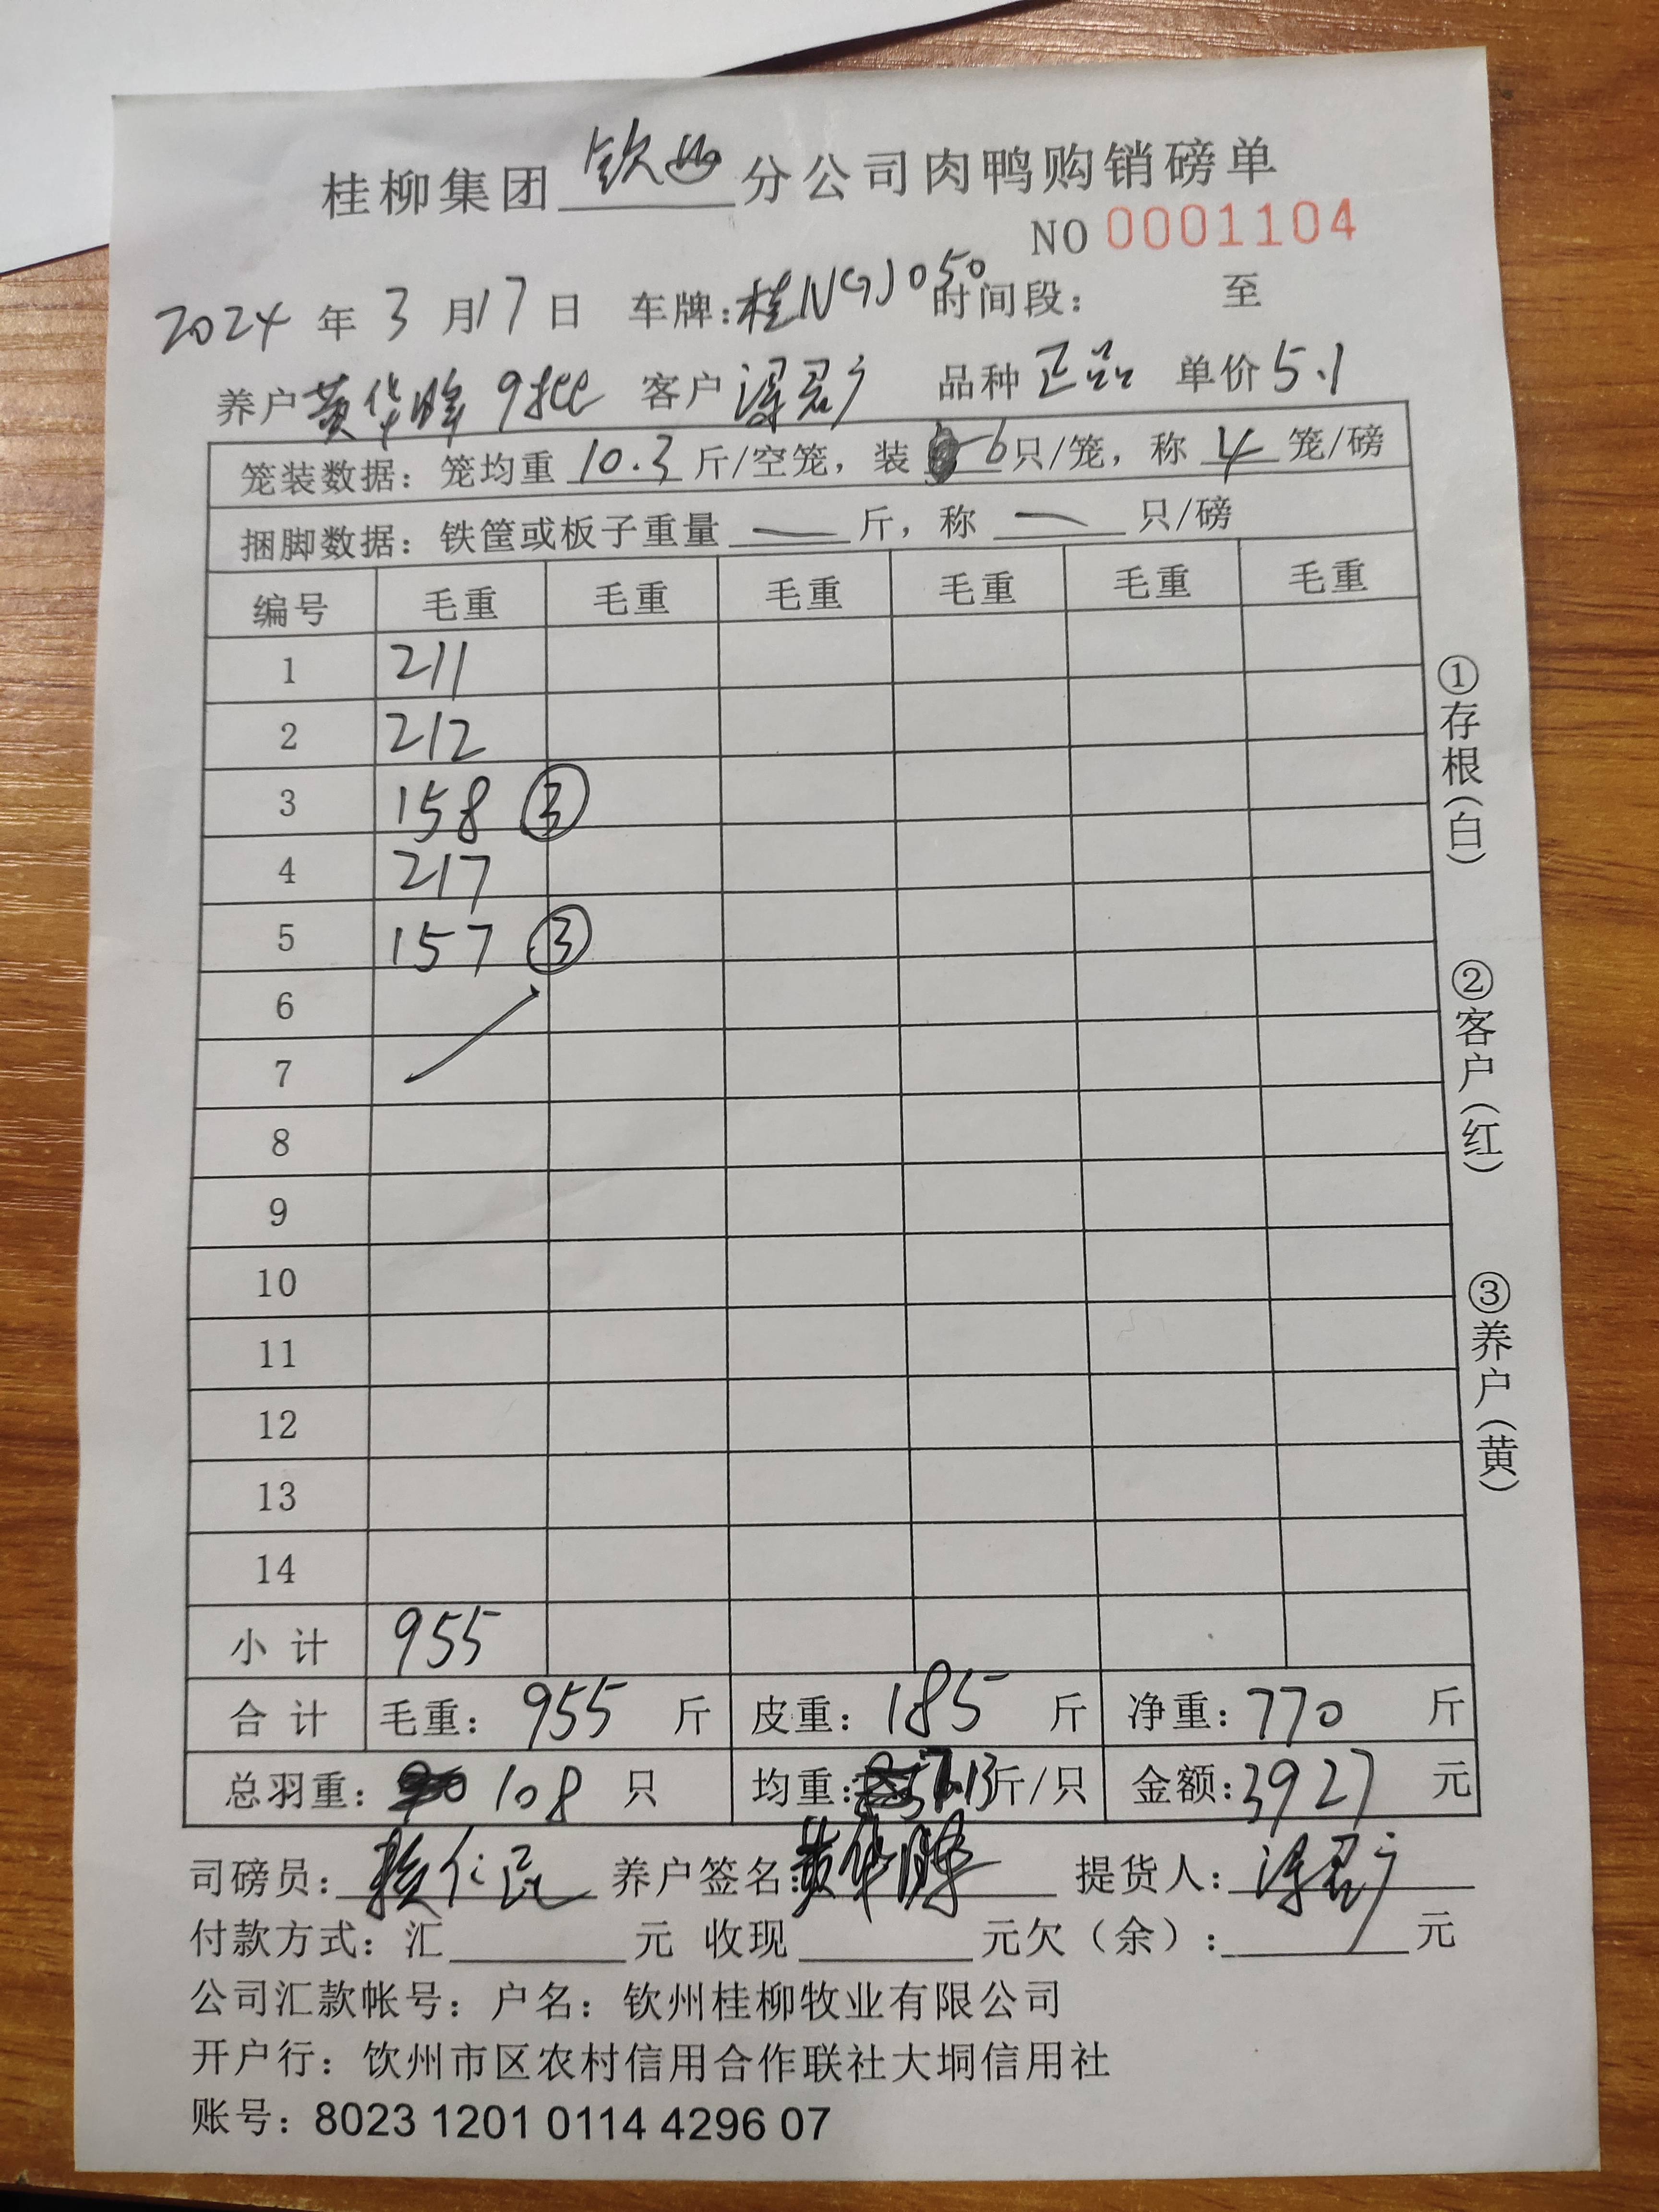 桂柳集团 钦州 分公司肉鸭购销磅单
NO 0001104
2024 年 3 月 17 日 车牌:桂NGJ050 时间段: 至
养户 黄华晖 9批 客户 梁君广 品种 正品 单价 5.1
笼装数据: 笼均重 10.3 斤/空笼, 装 6 只/笼, 称 4 笼/磅
捆脚数据: 铁筐或板子重量 — 斤, 称 — 只/磅
编号 毛重 毛重 毛重 毛重 毛重 毛重
1 211
2 212
3 158 ③
4 217
5 157 ③
6
7
8
9
10
11
12
13
14
小计 955
合计 毛重: 955 斤 皮重: 185 斤 净重: 770 斤
总羽重: 108 只 均重: 7.13 斤/只 金额: 3927 元
司磅员: 养户签名: 黄华晖 提货人: 梁君广
付款方式: 汇 元 收现 元欠(余): 元
公司汇款帐号: 户名: 钦州桂柳牧业有限公司
开户行: 钦州市区农村信用合作联社大垌信用社
账号: 8023 1201 0114 4296 07
①存根(白)
②客户(红)
③养户(黄)